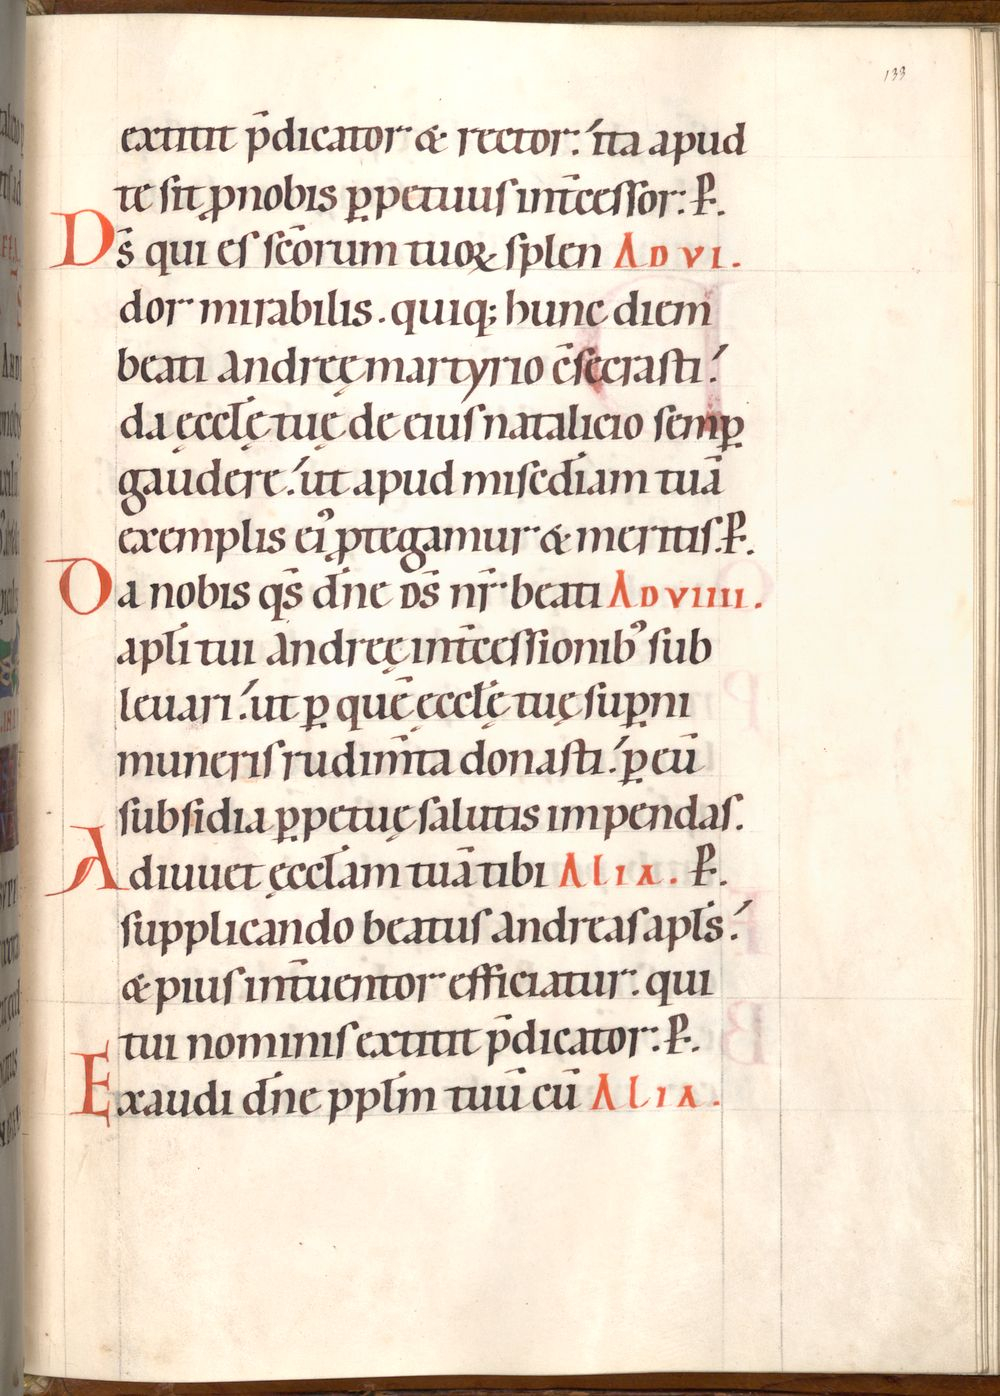 133
extitit p̄dicator & rector: ita apud
te sit ꝓnobis ꝑpetuus int̄cessor: P̵.
Ds̄ qui es sc̄orum tuoꝝ splen AD VI.
dor mirabilis. quiq; hunc diem
beati andreę martyrio c̄secrasti:
da ęccl̄ę tuę de eius natalicio semꝑ
gaudere: ut apud misc̄diam tuā
exemplis ei᾽ ꝓtegamur & meritis. P̵.
Da nobis qs̄ dn̄e ds̄ nr̄ beati AD VIIII.
apl̄i tui andreę int̄cessionib᾽ sub
leuari: ut ꝑ quē ęccl̄ę tuę suꝑni
muneris rudim̄ta donasti: ꝑ eū
subsidia ꝑpetuę salutis impendas.
Adiuuet ęccl̄am tuā tibi ALIA. P̵.
supplicando beatus andreas apl̄s:
& pius int̄uentor efficiatur: qui
tui nominis extitit p̄dicator: P̵.
Exaudi dn̄e ppl̄m tuū cū ALIA.